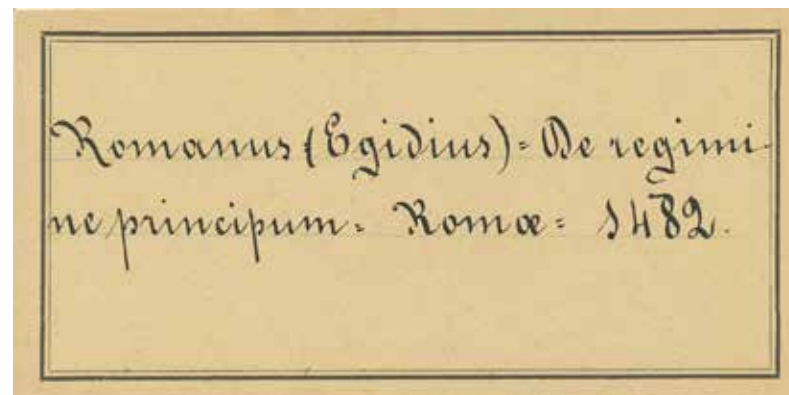 Romanus (Egidius)= De regimi-
ne principum= Romæ= 1482.